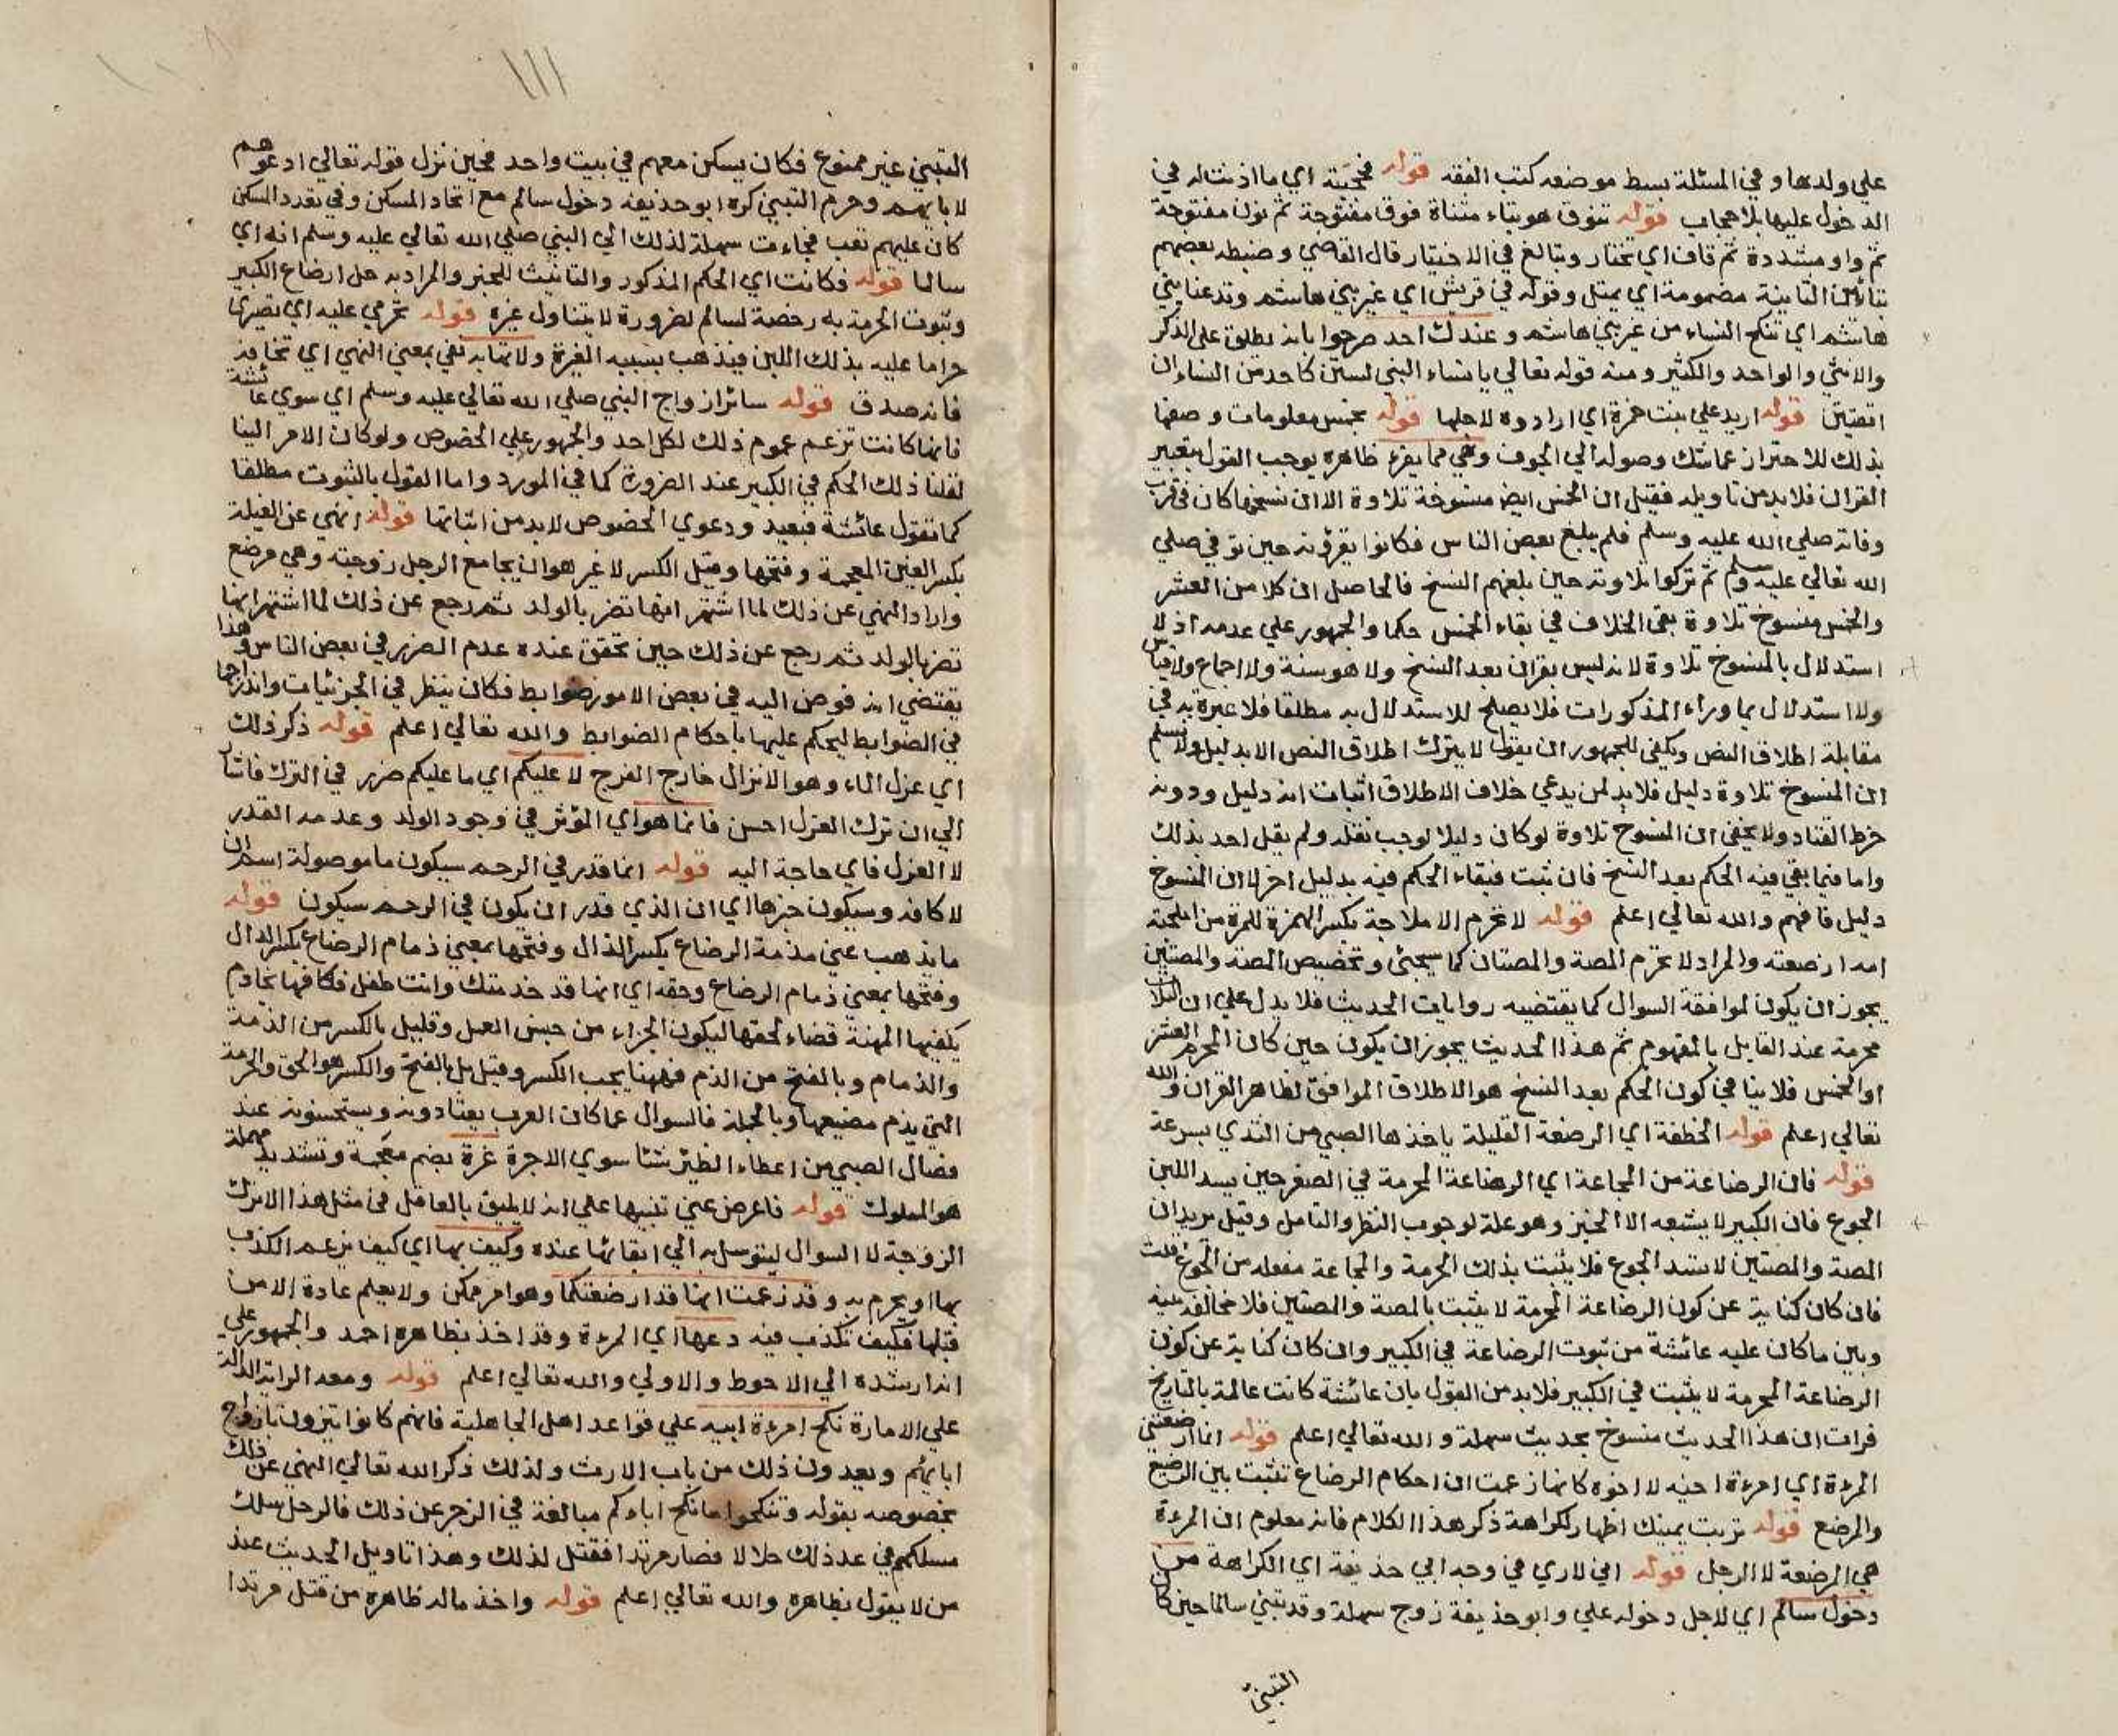 علي ولدها وفي المسئلة بسط موضعه كتب الفقه قوله فحجبته اي ما اذنت له في
الدخول عليها بلا حجاب قوله تنوق هو بتاء مثناة فوق مفتوحة ثم نون مفتوحة
ثم واو مشددة ثم قاف اي تختار وتبالغ في الاختيار قال القاضي وضبطه بعضهم
بتائين الثانية مضمومة اي تميل وقوله في قريش اي غير بني هاشم وتدعنا بني
هاشم اي تنكح النساء من غير بني هاشم وعندك احد صرحوا بانه يطلق علي الذكر
والانثي والواحد والكثير ومنه قوله تعالي يا نساء النبي لستن كاحد من النساء ان
اتقيتن قوله اريد علي بنت حمزة اي ارادوه لاجلها قوله بخمس معلومات وصفها
بذلك للاحتراز عما شك وصوله الي الجوف وهي مما يقرء ظاهره يوجب القول بتغيير
القران فلا بد من تاويله فقيل ان الخمس ايض منسوخة تلاوة الا ان نسخها كان في قرب
وفاته صلي الله عليه وسلم فلم يبلغ بعض الناس فكانوا يقرؤنه حين توفي صلي
الله تعالي عليه وسلم ثم تركوا تلاوته حين بلغهم النسخ فالحاصل ان كلا من العشر
والخمس منسوخ تلاوة بقي الخلاف في بقاء الخمس حكما والجمهور علي عدمه اذ لا
استدلال بالمنسوخ تلاوة لانه ليس بقران بعد النسخ ولا هو سنة ولا اجماع ولا قياس
ولا استدلال بما وراء المذكورات فلا يصلح للاستدلال به مطلقا فلا عبرة به في
مقابلة اطلاق النص ويكفي للجمهور ان يقول لا يترك اطلاق النص الا بدليل ولا نسلم
ان المنسوخ تلاوة دليل فلا بد لمن يدعي خلاف الاطلاق اثبات انه دليل ودونه
خرط القتاد ولا يخفي ان المنسوخ تلاوة لو كان دليلا لوجب نقله ولم يقل احد بذلك
واما فيما بقي فيه الحكم بعد النسخ فان ثبت فبقاء الحكم فيه بدليل اخر لا ان المنسوخ
دليل فافهم والله تعالي اعلم قوله لا تحرم الاملاجة بكسر الهمزة للمرة من املجته
امه ارضعته والمراد لا تحرم المصة والمصتان كما سيجئ وتخصيص المصة والمصتين
يجوز ان يكون لموافقة السوال كما يقتضيه روايات الحديث فلا يدل علي ان الثلاث
محرمة عند القايل بالمفهوم ثم هذا الحديث يجوز ان يكون حين كان المحرم العشر
او الخمس فلا ينافي كون الحكم بعد النسخ هو الاطلاق الموافق لظاهر القران والله
تعالي اعلم قوله الخطفة اي الرضعة القليلة ياخذها الصبي من الثدي بسرعة
قوله فان الرضاعة من المجاعة اي الرضاعة المحرمة في الصغر حين يسد اللبن
الجوع فان الكبير لا يشبعه الا الخبز وهو علة لوجوب النظر والتامل وقيل يريد ان
المصة والمصتين لا تسد الجوع فلا يثبت بذلك الحرمة والمجاعة مفعلة من الجوع قلت
فان كان كناية عن كون الرضاعة المحرمة لا يثبت بالمصة والمصتين فلا مخالفة بينه
وبين ما كان عليه عائشة من ثبوت الرضاعة في الكبير وان كان كناية عن كون
الرضاعة المحرمة لا يثبت في الكبير فلا بد من القول بان عائشة كانت عالمة بالتاريخ
فرات ان هذا الحديث منسوخ بحديث سهلة والله تعالي اعلم قوله انما ارضعتني
المرءة اي امرءة اخيه لا اخوه كانها زعمت ان احكام الرضاع تثبت بين الرضيع
والمرضع قوله تربت يمينك اظهار لكراهة ذكر هذا الكلام فانه معلوم ان المرءة
هي المرضعة لا الرجل قوله اني لاري في وجه ابي حذيفة اي الكراهة من
دخول سالم اي لاجل دخوله علي وابو حذيفة زوج سهلة وقد تبني سالما حين كان
التبني
التبني غير ممنوع فكان يسكن معهم في بيت واحد فحين نزل قوله تعالي ادعوهم
لابايهم وحرم التبني كره ابو حذيفة دخول سالم مع اتحاد المسكن وفي تعدد المسكن
كان عليهم تعب فجاءت سهلة لذلك الي النبي صلي الله تعالي عليه وسلم انه اي
سالما قوله فكانت اي الحكم المذكور والتانيث للخبر والمراد به حل ارضاع الكبير
وثبوت الحرمة به رخصة لسالم لضرورة لا يتناول غيره قوله تحرمي عليه اي تصيري
حراما عليه بذلك اللبن فيذهب بسببه الغيرة ولا تهابه نفي بمعني النهي اي تخافه
فانه صدق قوله سائر ازواج النبي صلي الله تعالي عليه وسلم اي سوي عائشة
فانها كانت تزعم عموم ذلك لكل احد والجمهور علي الخصوص ولو كان الامر الينا
لقلنا ذلك الحكم في الكبير عند الضرورة كما في المورد واما القول بالثبوت مطلقا
كما تقول عائشة فبعيد ودعوي الخصوص لا بد من اثباتها قوله انهي عن الغيلة
بكسر الغين المعجمة وفتحها وقيل الكسر لا غير هو ان يجامع الرجل زوجته وهي مرضع
واراد النهي عن ذلك لما اشتهر انها تضر بالولد ثم رجع عن ذلك لما اشتهر انها
تضر بالولد ثم رجع عن ذلك حين تحقق عنده عدم الضرر في بعض الناس وهذا
يقتضي انه فوض اليه في بعض الامور ضوابط فكان ينظر في الجزئيات واندراجها
في الضوابط ليحكم عليها باحكام الضوابط والله تعالي اعلم قوله ذكر ذلك
اي عزل الماء وهو الانزال خارج الفرج لا عليكم اي ما عليكم ضرر في الترك فاشار
الي ان ترك العزل احسن فانما هو اي المؤثر في وجود الولد وعدمه القدر
لا العزل فاي حاجة اليه قوله انما قدر في الرحم سيكون ما موصولة اسم ان
لا كافة وسيكون خبرها اي ان الذي قدر ان يكون في الرحم سيكون قوله
ما يذهب عني مذمة الرضاع بكسر الذال وفتحها بمعني ذمام الرضاع بكسر الذال
وفتحها بمعني ذمام الرضاع وحقه اي انها قد خدمتك وانت طفل فكافها بخادم
يكفيها المهنة قضاء لحقها ليكون الجزاء من جنس العمل وقليل بالكسر من الذمة
والذمام وبالفتح من الذم فههنا يجب الكسر وقيل بل بالفتح والكسر هو الحق والحرمة
التي يذم مضيعها وبالجملة فالسوال عما كان العرب يعتادونه ويستحسنونه عند
فصال الصبي من اعطاء الظئر شئا سوي الاجرة غرة بضم معجمة وتشديد مهملة
هو المملوك قوله فاعرض عني تنبيها علي انه لا يليق بالعاقل في مثل هذا الا ترك
الزوجة لا السوال ليتوسل به الي ابقائها عنده وكيف بها اي كيف يزعم الكذب
بها او يحرم به وقد زعمت انها قد ارضعتكما وهو امر ممكن ولا يعلم عادة الا من
قبلها فكيف تكذب فيه دعها اي المرءة وقد اخذ بظاهره احمد والجمهور علي
انه ارشده الي الاحوط والاولي والله تعالي اعلم قوله ومعه الراية الدالة
علي الامارة نكح امرءة ابيه علي قواعد اهل الجاهلية فانهم كانوا يتزون بازواج
ابائهم ويعدون ذلك من باب الارث ولذلك ذكر الله تعالي النهي عن ذلك
بخصوصه بقوله وتنكحوا ما نكح اباءكم مبالغة في الزجر عن ذلك فالرجل سلك
مسلكهم في عد ذلك حلالا فصار مرتدا فقتل لذلك وهذا تاويل الحديث عند
من لا يقول بظاهره والله تعالي اعلم قوله واخذ ماله ظاهره من قتل مرتدا